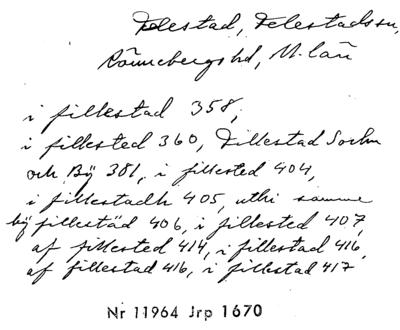 Felestad, Felestadssn,
Rönnebergs hd, M. län
i fillestad 358,
i fillested 360, Fillestad Sochn
och Bÿ 381, i fillested 404,
i fillestadh 405, uthi samme
bÿ fillestäd 406, i fillested 407,
af fillested 414, i fillestad 416,
af fillestad 416, i fillestad 417
Nr 11964 Jrp 1670